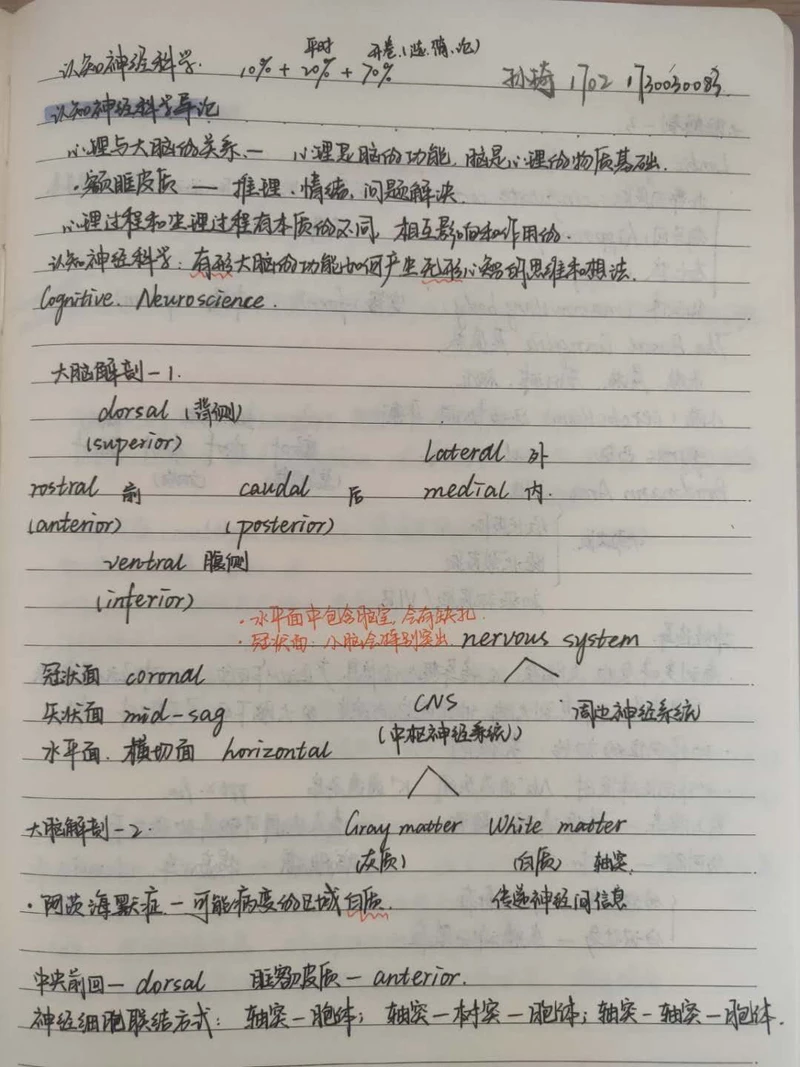 平时 开卷(选、简、论)
认知神经科学. 10% + 20% + 70% 孙琦 1702 1730030083
认知神经科学导论
心理与大脑的关系.— 心理是脑的功能,脑是心理的物质基础.
·额眶皮质 — 推理、情绪、问题解决.
心理过程和生理过程有本质的不同,相互影响和作用的.
认知神经科学:有形大脑的功能如何产生无形心智的思维和想法.
Cognitive. Neuroscience.
大脑解剖-1.
dorsal (背侧)
(superior)
Lateral 外
rostral 前 caudal 后 medial 内.
(anterior) (posterior)
ventral 腹侧
(inferior)
·水平面中包含脑室,会有缺孔.
·冠状面:小脑会特别突出. nervous system
冠状面 coronal
CNS 周边神经系统
矢状面 mid-sag
(中枢神经系统)
水平面.横切面 horizontal
大脑解剖-2. Gray matter White matter
(灰质) (白质) 轴突.
·阿茨海默症-可能病变的区域白质. 传递神经间信息
中央前回— dorsal 眶额皮质— anterior.
神经细胞联结方式: 轴突-胞体; 轴突-树突-胞体; 轴突-轴突-胞体.